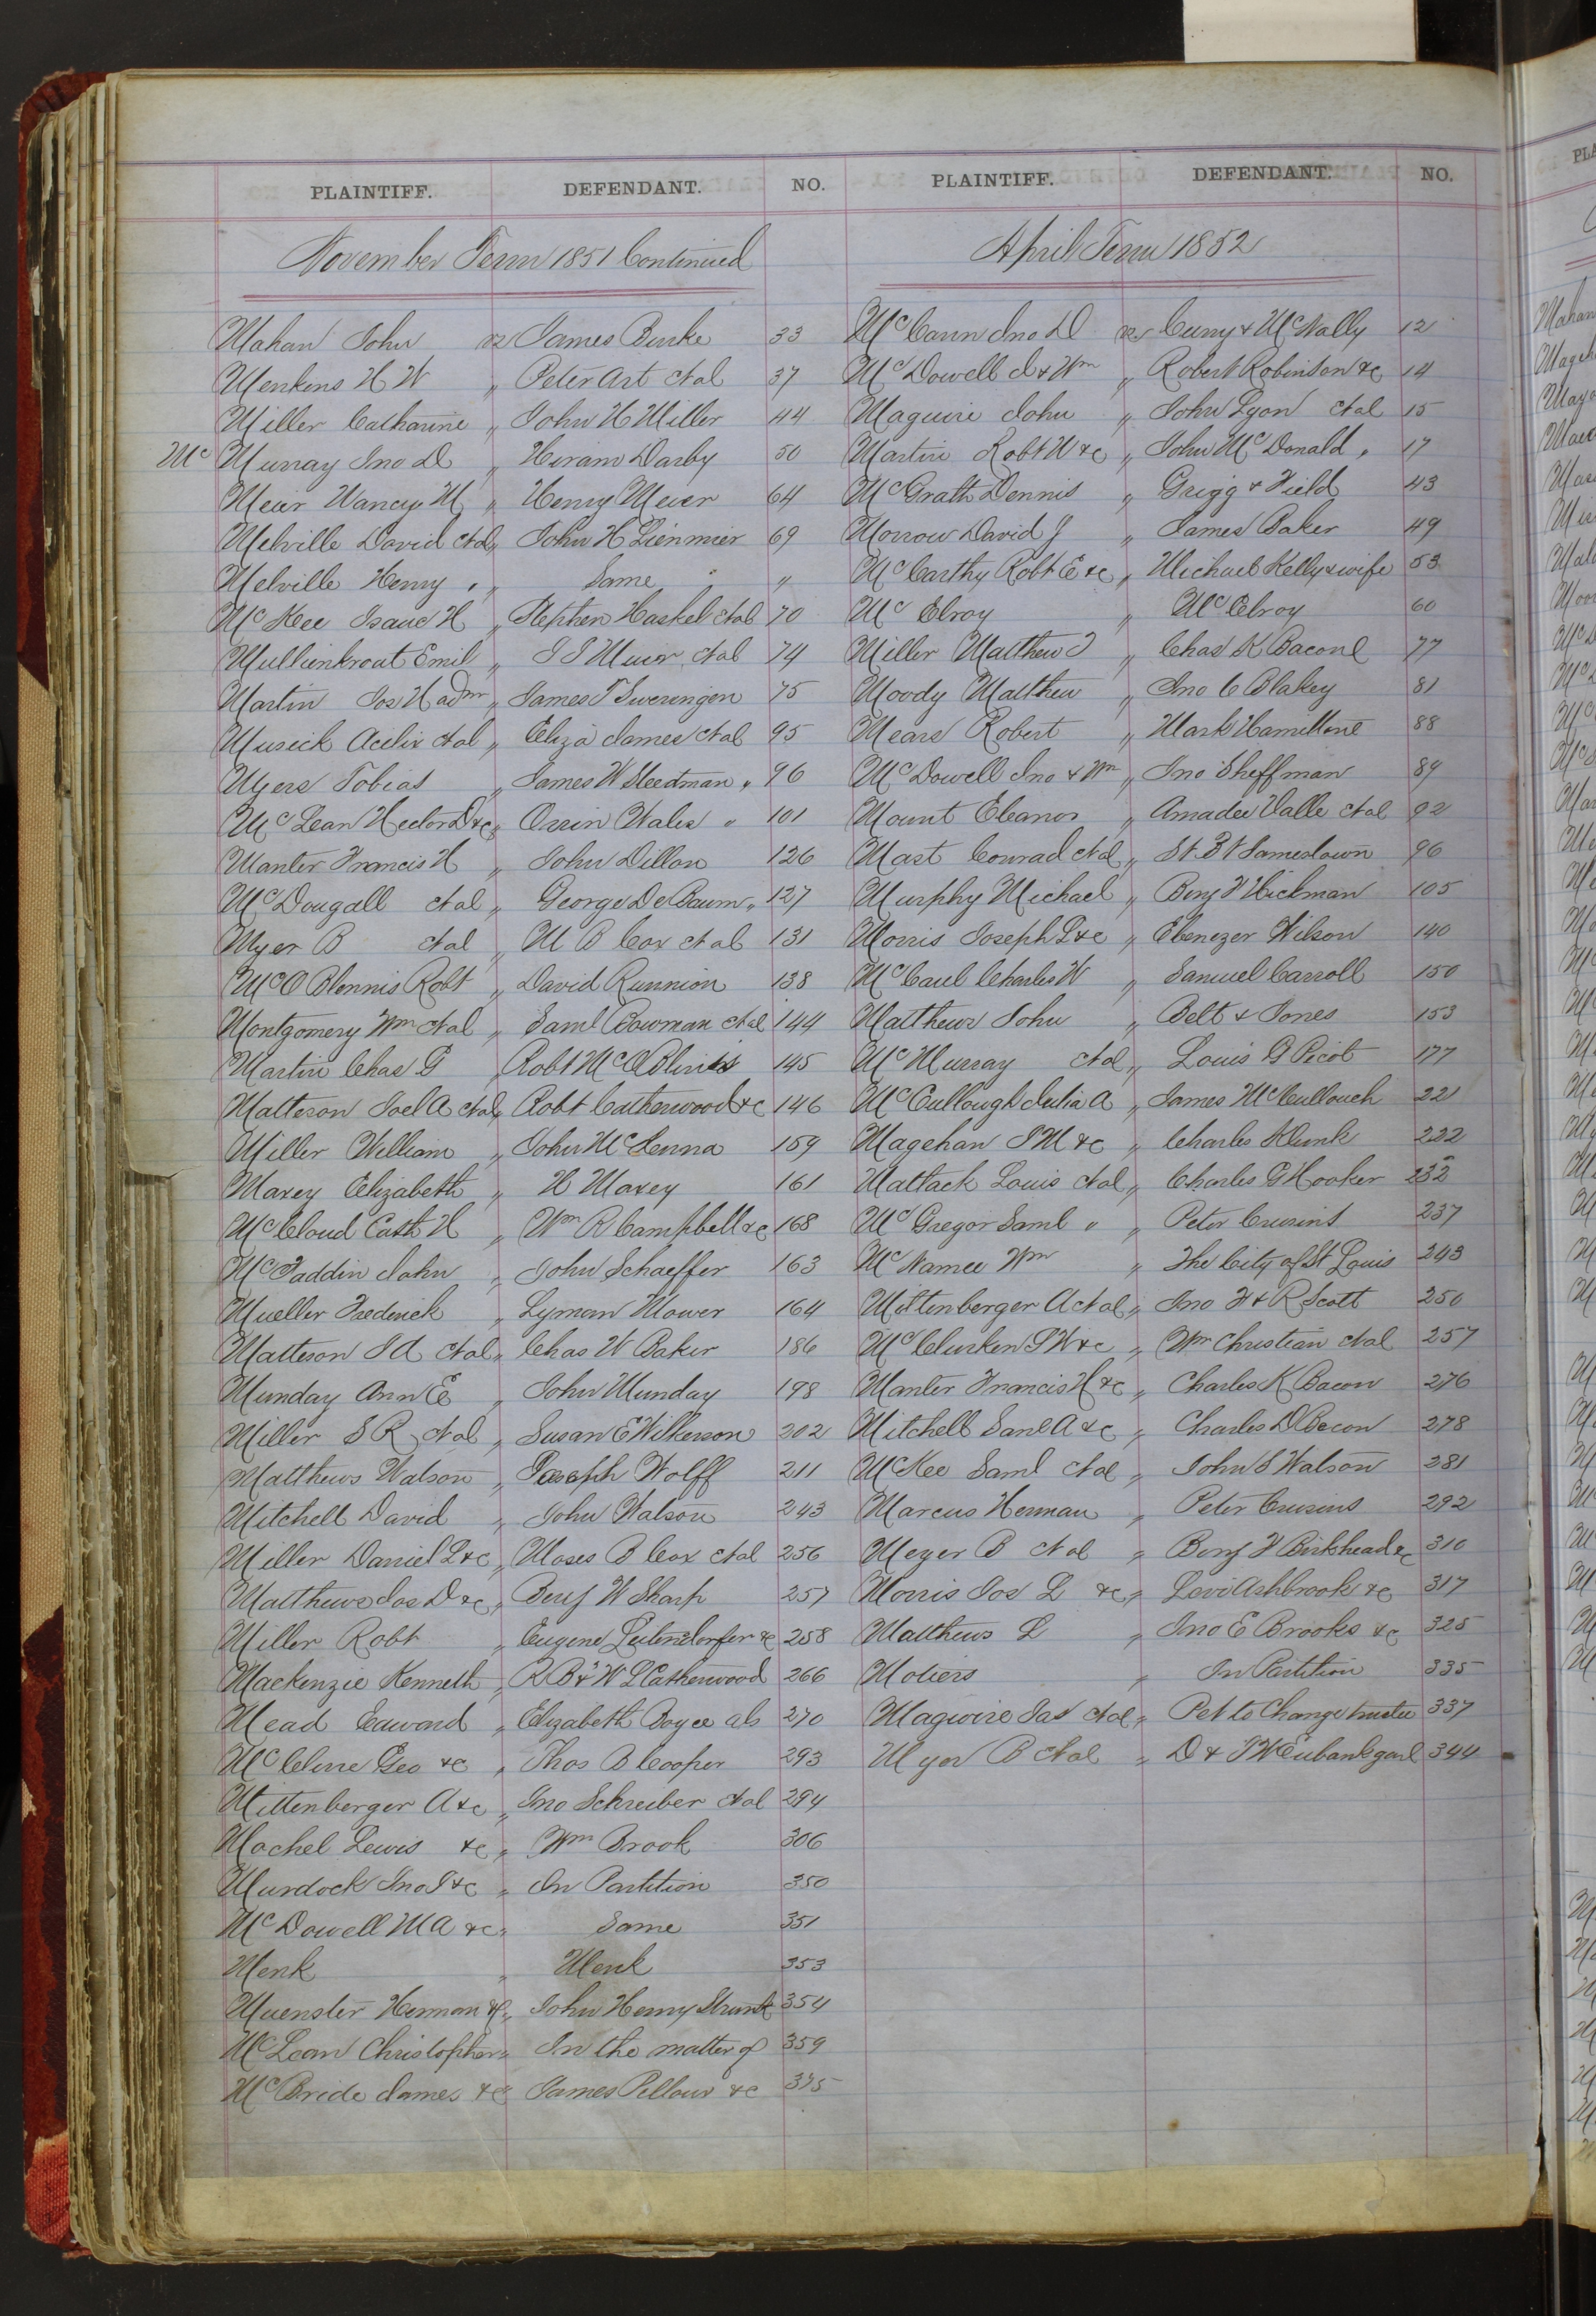 PLAINTIFF. DEFENDANT. NO.
November Term 1851 Continued
Mahan John vs James Burke 33
Menkens H W " Peter Art etal 37
Miller Catharine " John H Miller 44
Mc Murray Jno D " Hiram Darby 50
Meier Nancy M " Henry Meier 64
Melville David etal " John H Lienmier 69
Melville Henry " " Same " "
McKee Isaac H " Stephen Haskel etal 70
Mullinkrout Emil " etal 74
Martin Jos H adm " James T Sweringen 75
Musick etal " Eliza James etal 95
Myers Tobias " James W Steedman " 96
McLean Hector D &c " Orrin Wales " 101
Manter Francis H " John Dillon 126
McDougall etal " George De Baum " 127
Myer B etal " M B Cox etal 131
McO Blennis Robt " David Runnion 138
Montgomery Wm etal " Saml Bowman etal 144
Martin Chas G " Robt McO 145
Matteson Joel A etal " Robt Catherwood &c 146
Miller William " John McKenna 159
Maxey Elizabeth " H Maxey 161
McCloud Cath H " Wm R Campbell &c 168
McFaddin John " John Schaeffer 163
Mueller Frederick " Lyman Mower 164
Matteson J A etal " Chas W Baker 186
Munday Ann E " John Munday 198
Miller S R etal " Susan E Wilkerson 202
Matthews Watson " Joseph Wolff 211
Mitchell David " John Watson 243
Miller Daniel L &c " Moses B Cox etal 256
Matthews Jas D &c " Benj W Sharp 257
Miller Robt " Eugene Leitensdorfer &c 258
Mackenzie Kenneth " R B & W L Catherwood 266
Mead Edward " Elizabeth Boyce als 270
McClure Geo &c " Thos B Cooper 293
Mittenberger A &c " Jno Schreiber etal 294
Machel Lewis &c " Wm Brook 306
Murdock Jno J &c " In Partition 350
McDowell M A &c " Same 351
Menk " Menk 353
Muenster Herman &c " John Henry Strunk 354
McLean Christopher " In the matter of 359
McBride James &c James Pellour &c 375
PLAINTIFF. DEFENDANT. NO.
April Term 1852
McCann Jno D vs Curry & McNally 12
McDowell J & Wm " Robert Robinson &c 14
Maguire John " John Lyon etal 15
Martin Robt W &c " John McDonald " 17
McGrath Dennis " Grigg & Field 43
Morrow David J " James Baker 49
McCarthy Robt E &c " Michael Kelly & wife 53
McElroy " McElroy 60
Miller Matthew T " Chas K Bacon 77
Moody Matthew " Jno C Blakey 81
Mears Robert " Mark Hamilton 88
McDowell Jno & Wm " Jno Sheffman 89
Mount Eleanor " Amadee Valle etal 92
Mast Conrad etal " St Bt Jamestown 96
Murphy Michael " Benj F Hickman 105
Morris Joseph L &c " Ebenezer Wilson 140
McCaul Charles W " Samuel Carroll 150
Matthews John " Belt & Jones 153
McMurray etal " Louis G Picot 177
McCullough Julia A " James McCullouch 221
Magehan J M &c " Charles Klunk 222
Mattack Louis etal " Charles G Hooker 232
McGregor Saml " " Peter Crusins 237
McNamee Wm " The City of St Louis 243
Mittenberger A etal " Jno F & R Scott 250
McClurken J W &c " Wm Christian etal 257
Manter Francis H &c " Charles K Bacon 276
Mitchell Saml A &c " Charles D Bacon 278
McKee Saml etal " John S Watson 281
Marcus Herman " Peter Crusins 292
Meyer B etal " Benj F Birkhead &c 310
Morris Jos L &c " Levi Ashbrook &c 317
Matthews L " Jno E Brooks &c 325
Motiers " In Partition 335
Maguire Jas etal " Pet to Change trustee 337
Myer B etal " D & J W Eubank garl 344